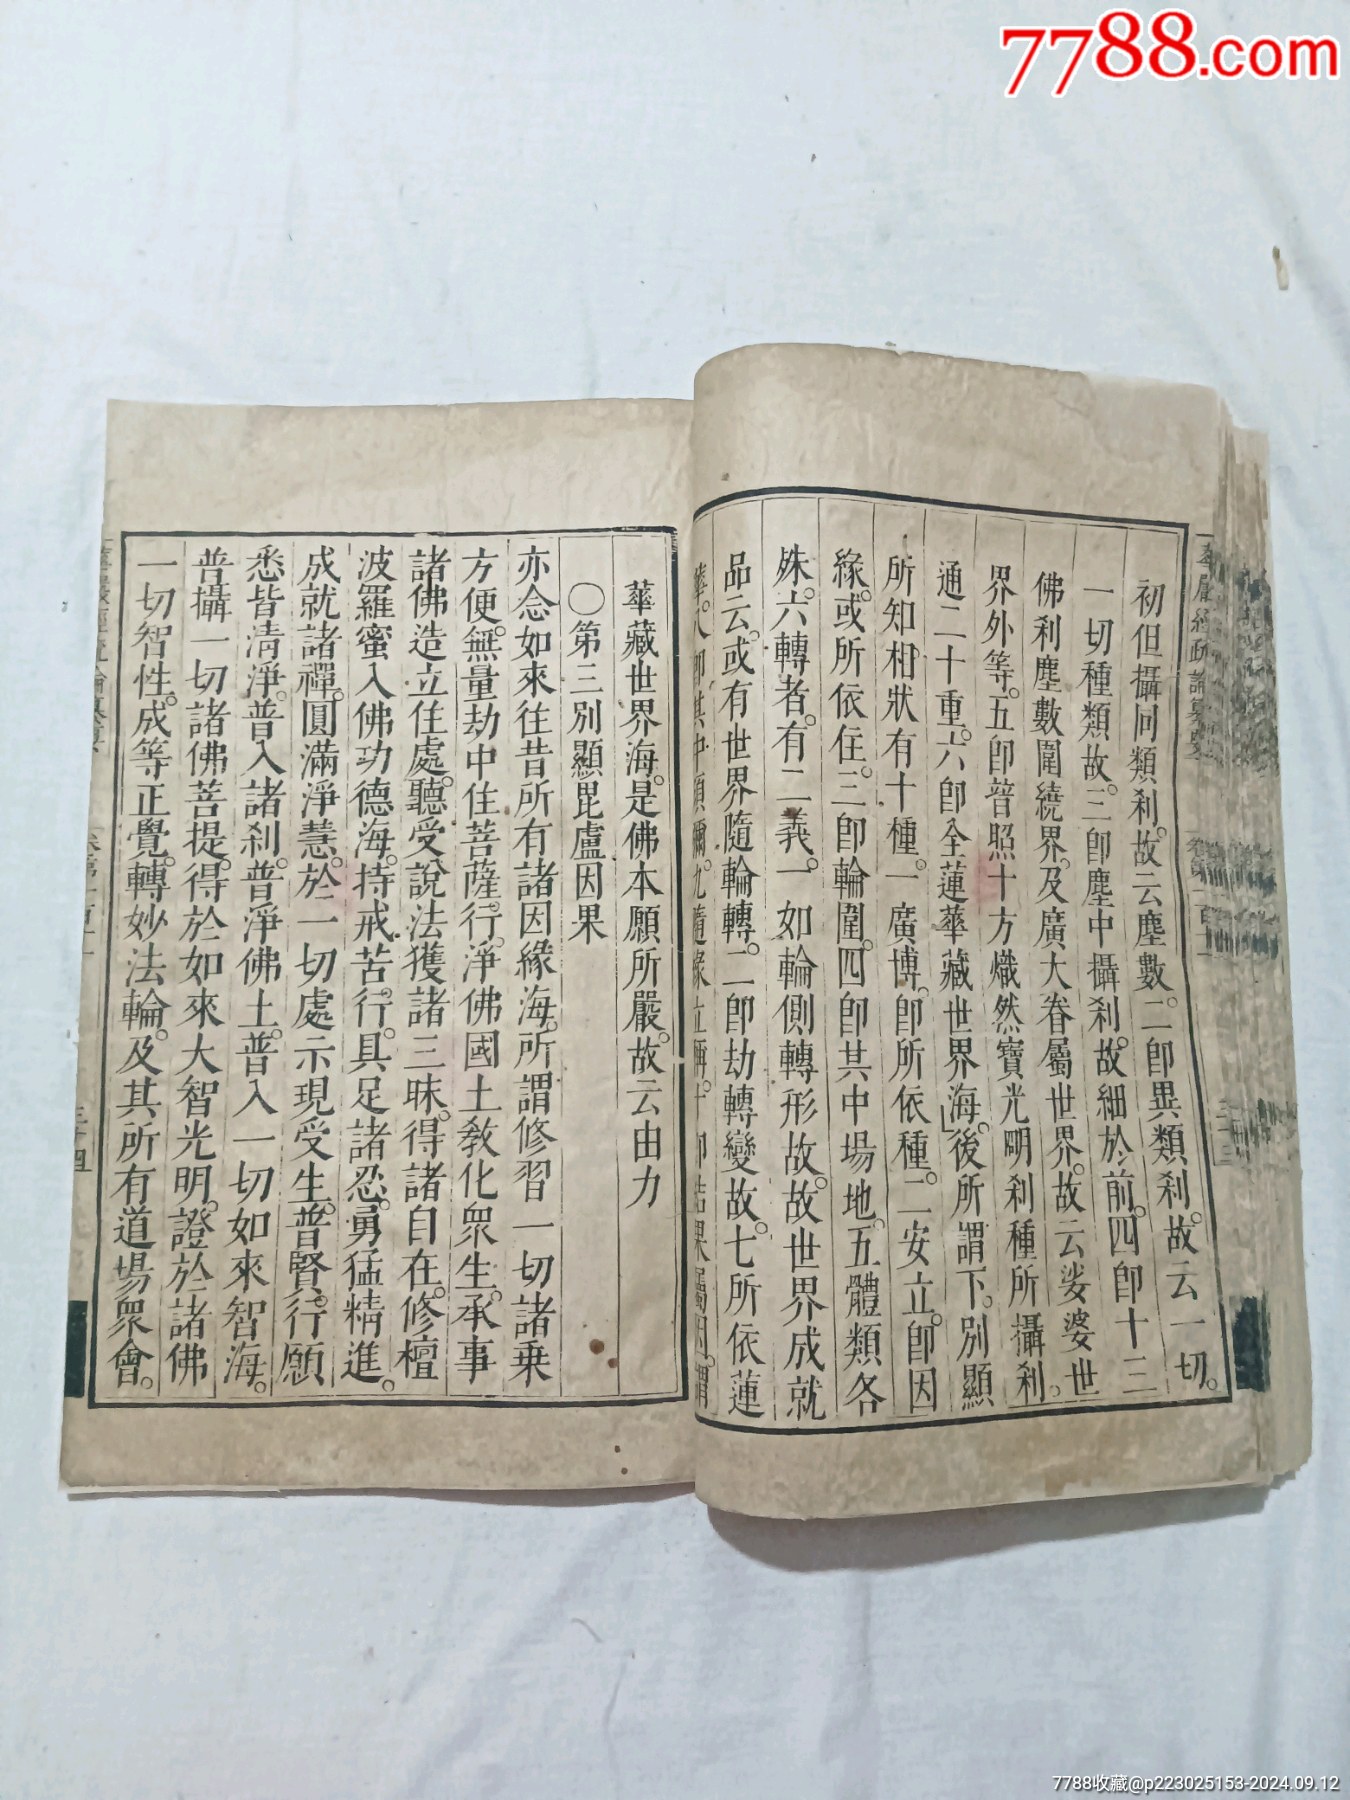 7788.com
華嚴經疏論纂要
初但攝同類刹。故云塵數。二卽異類刹。故云一切。
一切種類故。三卽塵中攝刹。故細於前。四卽十三
佛刹塵數圍繞界。及廣大眷屬世界。故云娑婆世
界外等。五卽普照十方熾然寶光明刹種所攝刹。
通二十重。六卽全蓮華藏世界海。後所謂下。別顯
所知。相狀有十種。一廣博。卽所依種。二安立。卽因
緣。或所依住。三卽輪圍。四卽其中場地。五體類各
殊。六轉者。有二義。一如輪側轉形故。故世界成就
品云。或有世界隨輪轉。二卽劫轉變故。七所依蓮
華藏世界海。是佛本願所嚴。故云由力
〇第三別顯毘盧因果
亦念如來往昔所有諸因緣海。所謂修習一切諸乘
方便。無量劫中住菩薩行。淨佛國土。敎化衆生。承事
諸佛。造立住處。聽受說法。獲諸三昧。得諸自在。修檀
波羅蜜。入佛功德海。持戒苦行。具足諸忍。勇猛精進。
成就諸禪。圓滿淨慧。於一切處示現受生。普賢行願
悉皆清淨。普入諸刹。普淨佛土。普入一切如來智海。
普攝一切諸佛菩提。得於如來大智光明。證於諸佛
一切智性。成等正覺。轉妙法輪。及其所有道場衆會。
7788收藏@p223025153-2024.09.12